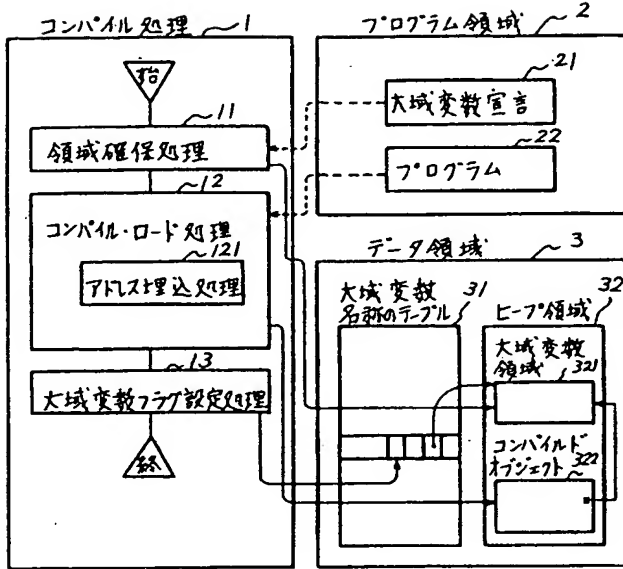 コンパイル処理 1
始
11
領域確保処理
12
コンパイル・ロード処理
121
アドレス埋込処理
13
大域変数フラグ設定処理
終
プログラム領域 2
21
大域変数宣言
22
プログラム
データ領域 3
大域変数
名称のテーブル 31
ヒープ領域 32
大域変数
領域 321
コンパイルド
オブジェクト 322